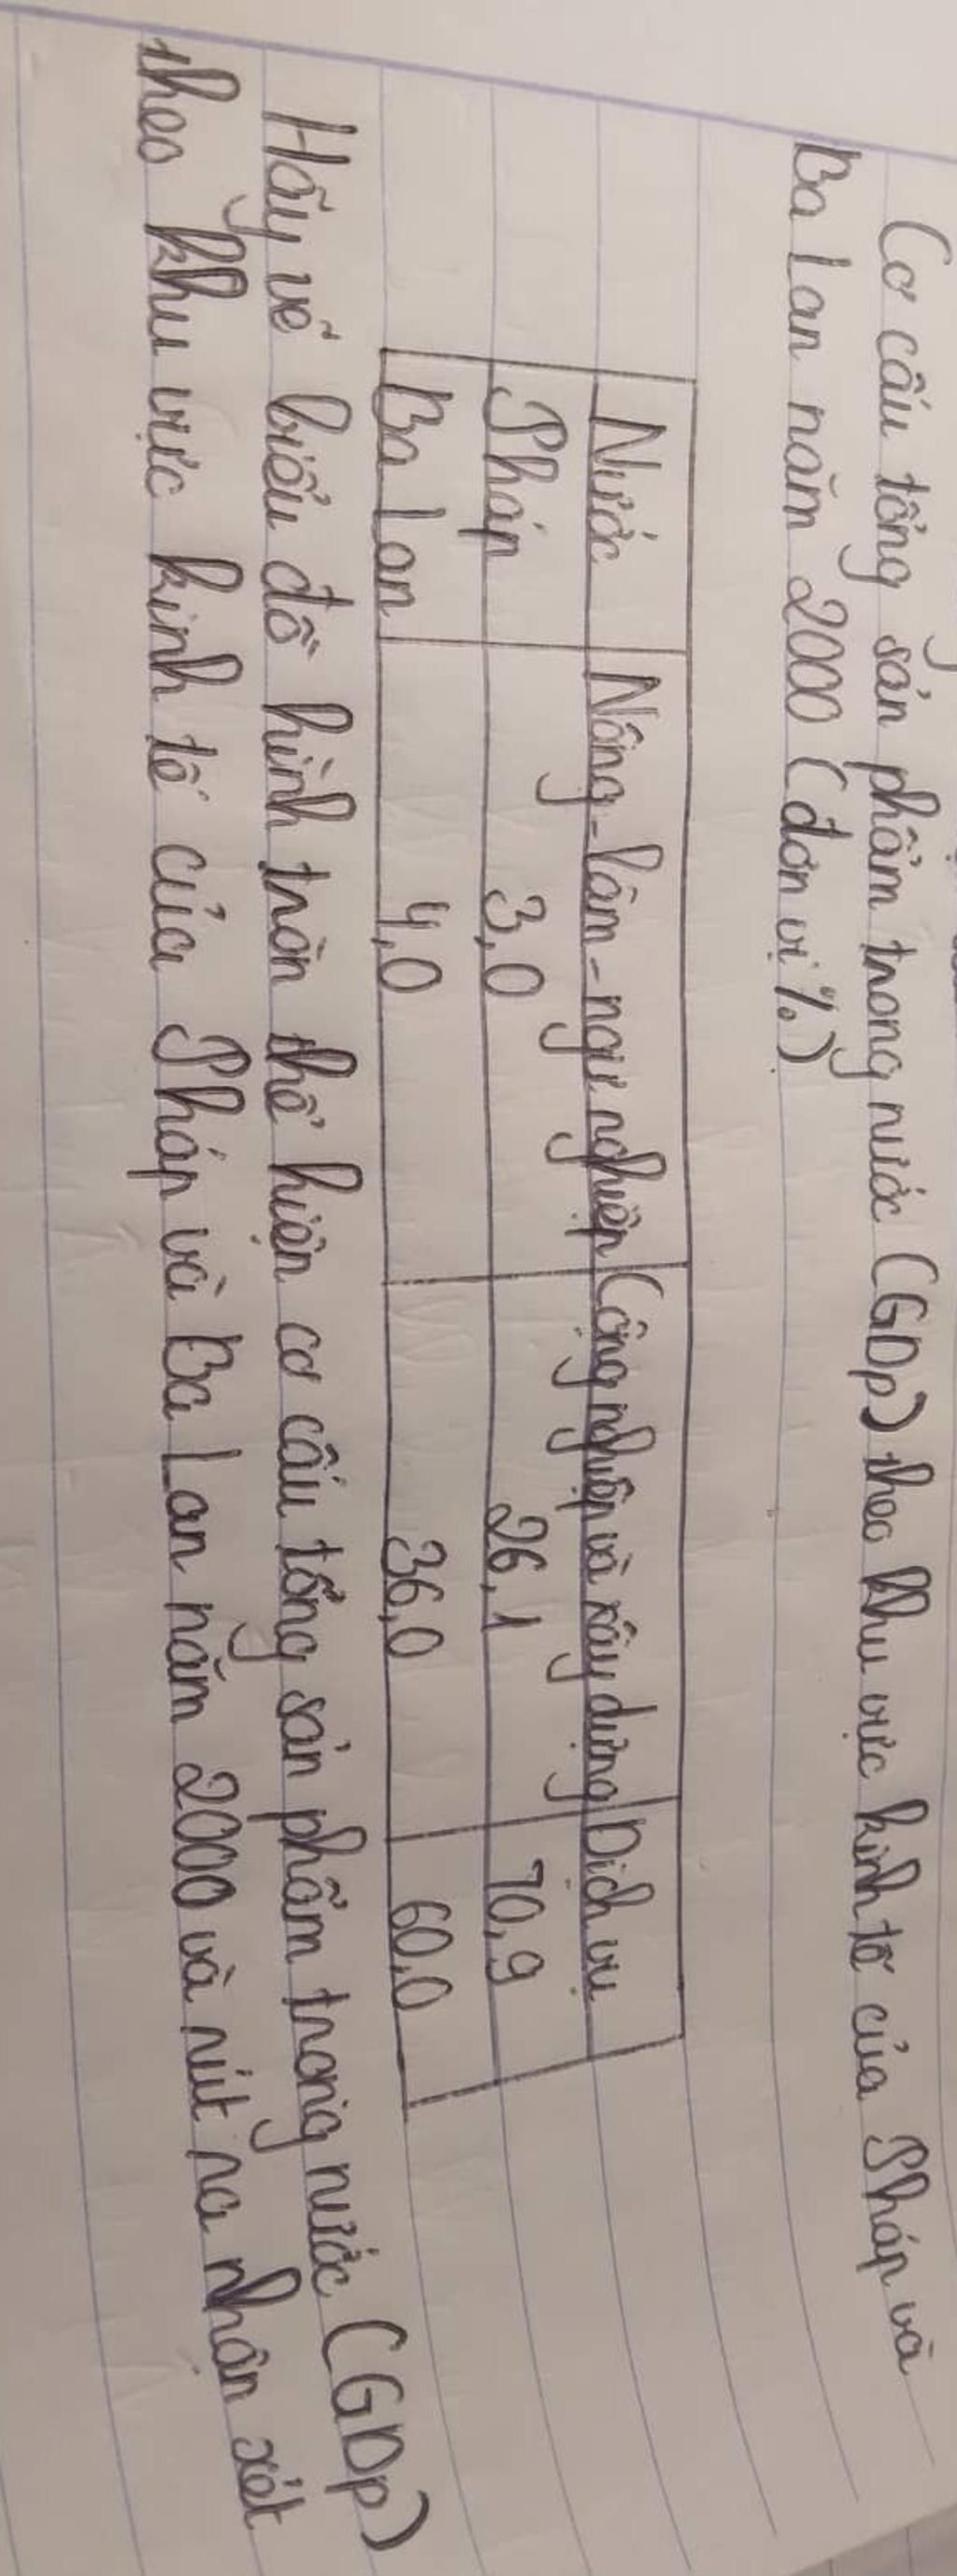 Cơ cấu tổng sản phẩm trong nước (GDp) theo khu vực kinh tế của Pháp và
Ba Lan năm 2000 (đơn vị %)
Nước Nông-lâm-ngư nghiệp Công nghiệp và xây dựng Dịch vụ
Pháp 3,0 26,1 70,9
Ba Lan 4,0 36,0 60,0
Hãy vẽ biểu đồ hình tròn thể hiện cơ cấu tổng sản phẩm trong nước (GDp)
theo khu vực kinh tế của Pháp và Ba Lan năm 2000 và rút ra nhận xét